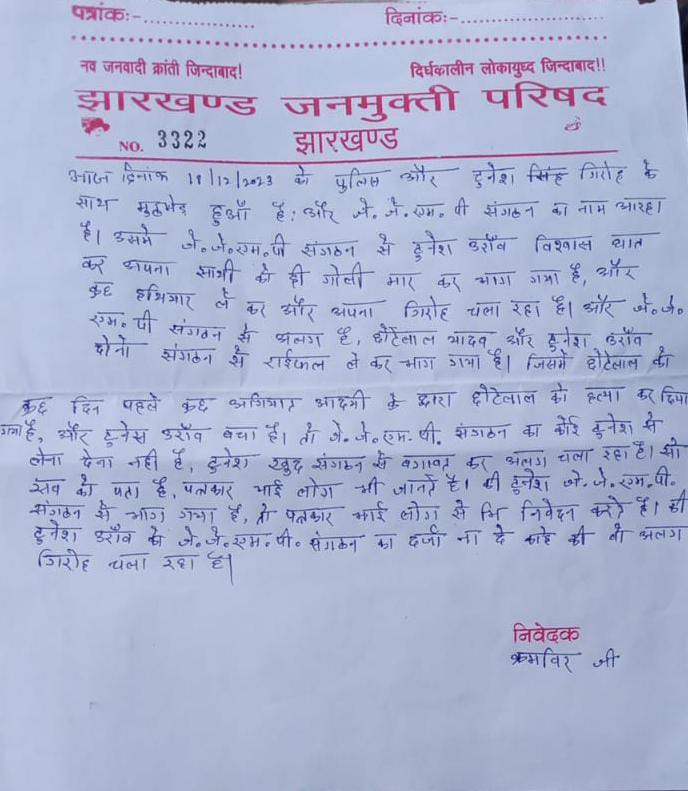 पत्रांक:-................ दिनांक:-....................
नव जनवादी क्रांती जिन्दाबाद! दिर्घकालीन लोकायुध्द जिन्दाबाद!!
झारखण्ड जनमुक्ती परिषद
NO. 3322 झारखण्ड
आज दिनांक 18/12/2023 को पुलिस और टुनेश सिंह गिरोह के
साथ मुठभेड़ हुआँ है: और जे. जे. एम. पी संगठन का नाम आरहा
है। उसमे जे.जे.एम.पी संगठन से टुनेश उराँव विश्वास घात
कर अपना साथी को ही गोली मार कर भाग गया है, और
कुछ हथियार ले कर और अपना गिरोह चला रहा है। और जे.जे.
एम.पी संगठन से अलग है, छोटेलाल यादव और टुनेश उराँव
दोनो संगठन से राईफल ले कर भाग गया है। जिसमे छोटेलाल को
कुछ दिन पहले कुछ अगियात आदमी के द्वारा छोटेलाल को हत्या कर दिया
गया है, और टुनेस उराँव बचा है। तो जे. जे. एम. पी. संगठन का कोई टुनेश से
लेना देना नही है, टुनेश खुद संगठन से बगावत कर अलग चला रहा है। सो
सब को पता है, पत्रकार भाई लोग भी जानते है। की टुनेश जे. जे. एम. पी.
संगठन से भाग गया है, तो पत्रकार भाई लोग से भि निवेदन करते है। की
टुनेश उराँव को जे.जे.एम.पी. संगठन का दर्जा ना दे काहे की वो अलग
गिरोह चला रहा है।
निवेदक
जी